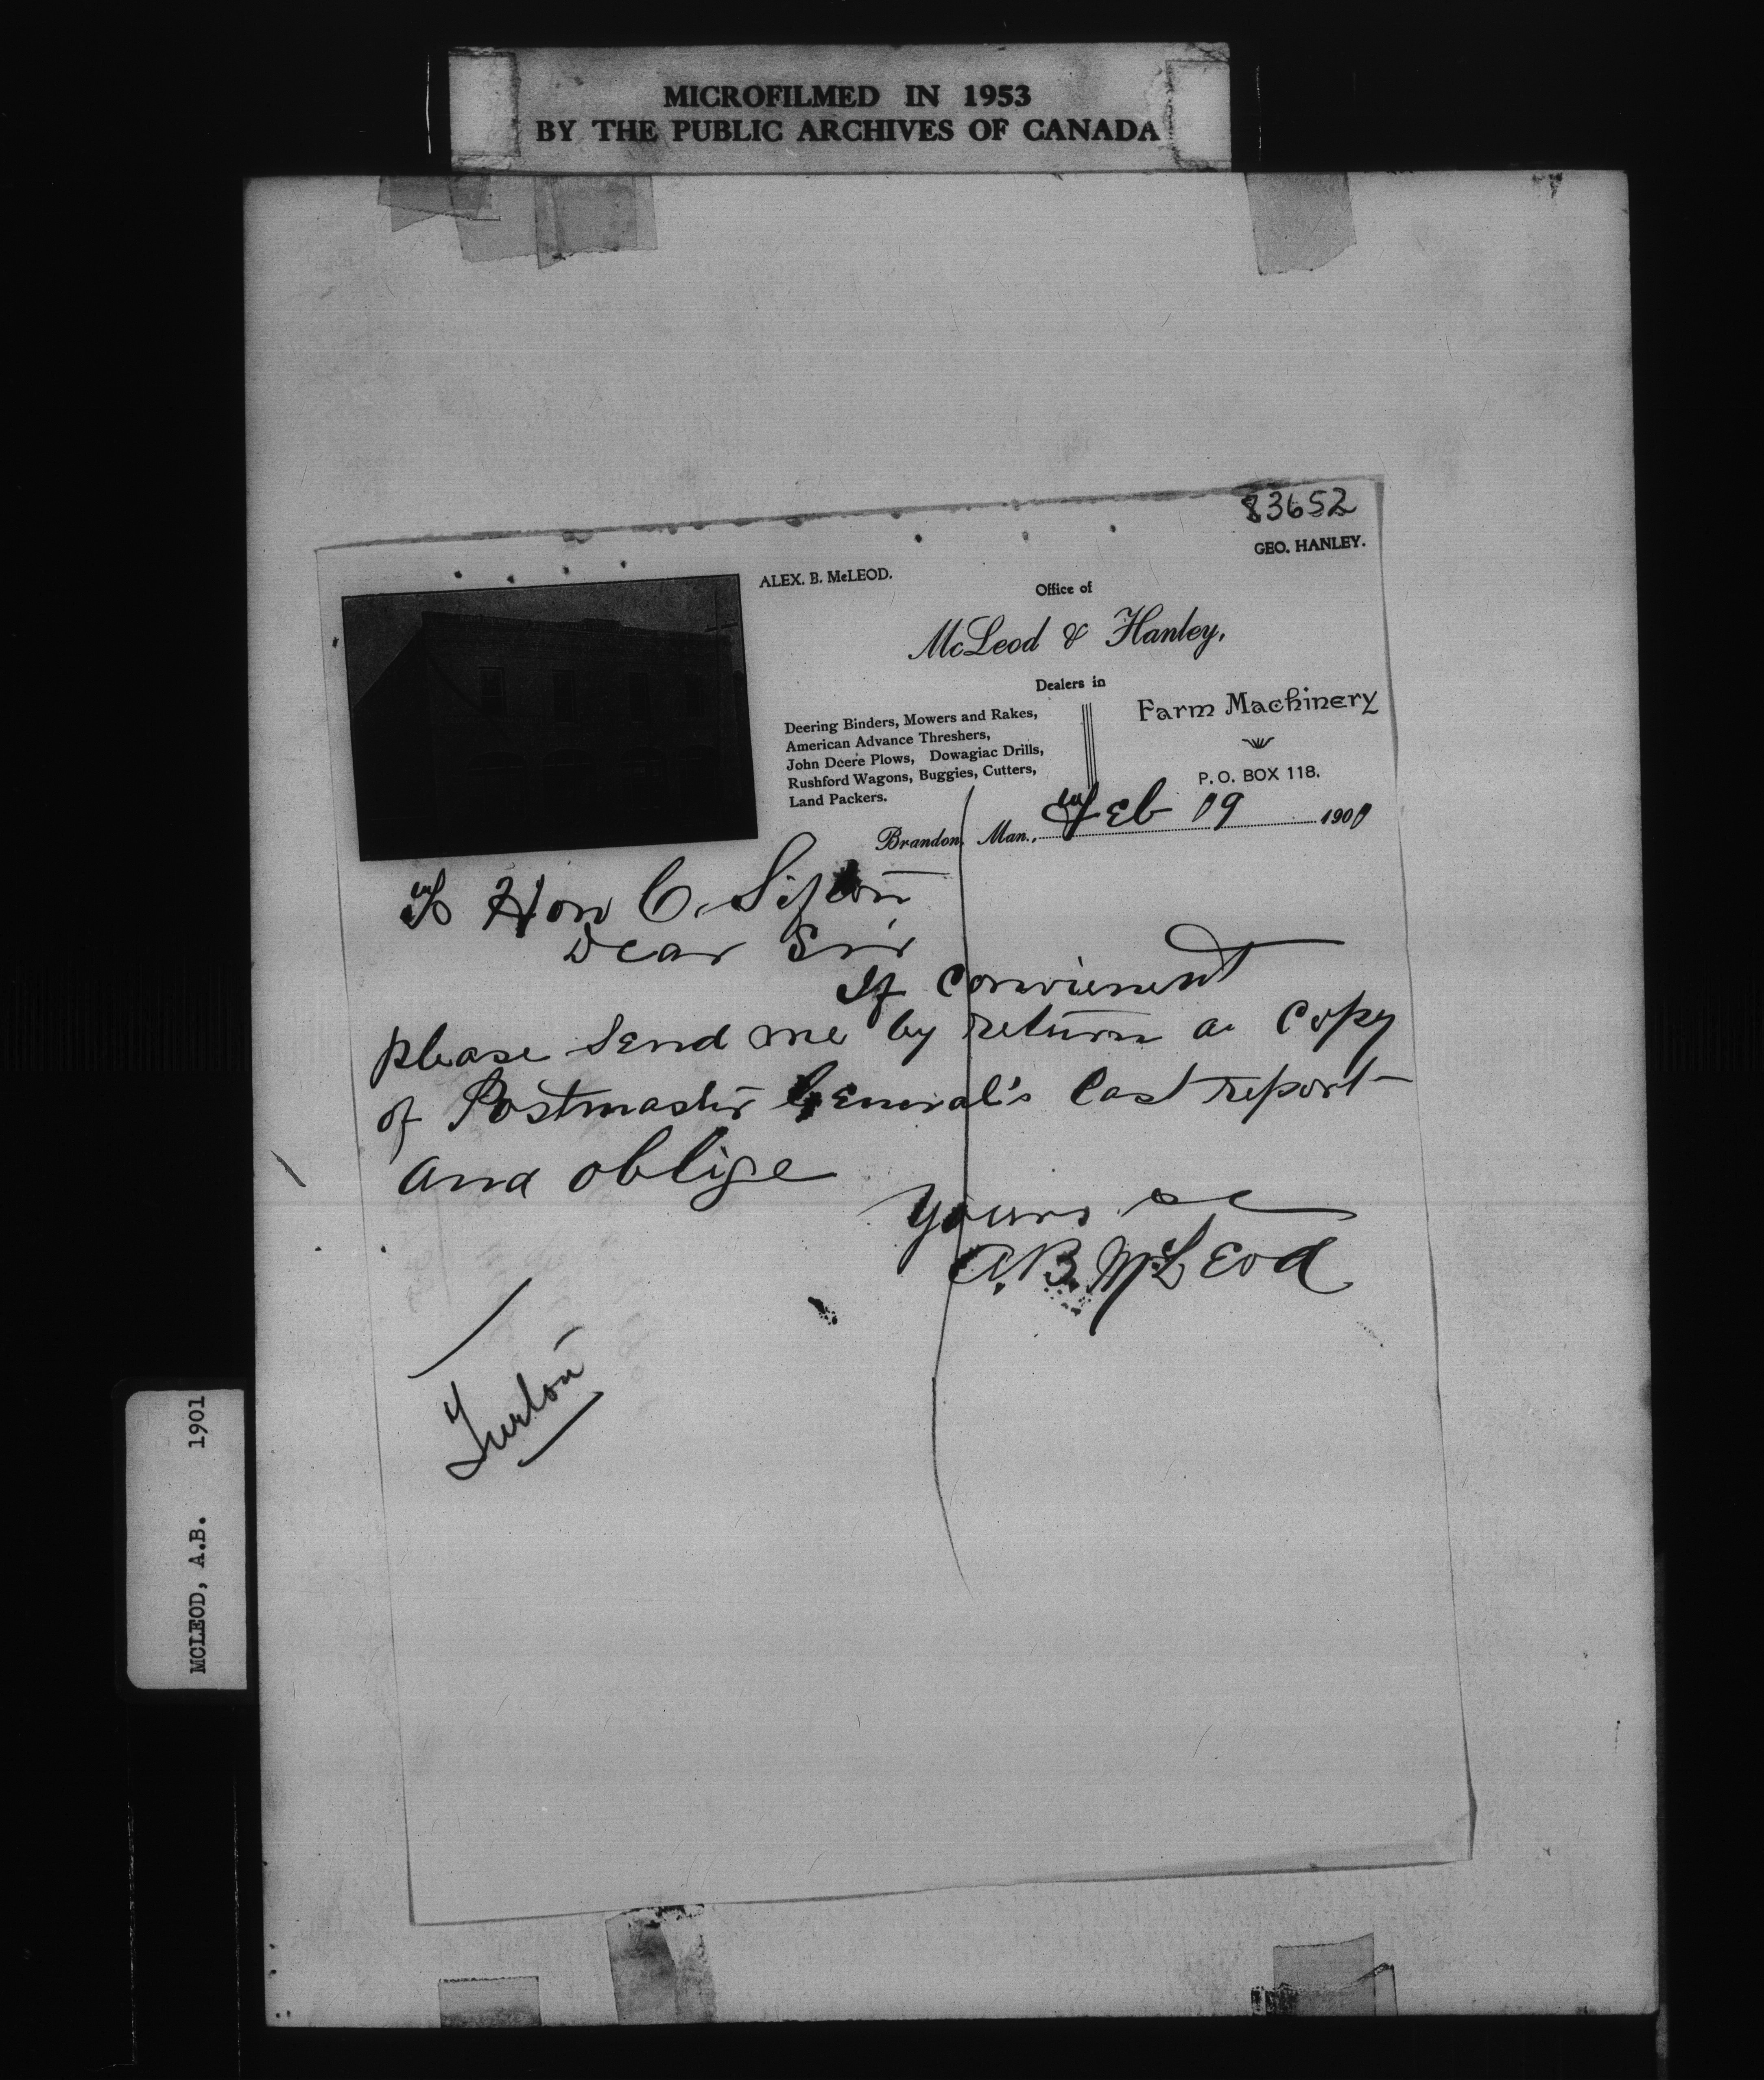 MICROFILMED IN 1953
BY THE PUBLIC ARCHIVES OF CANADA
83652
GEO. HANLEY.
ALEX. B. McLEOD.
Office of
McLeod & Hanley,
Dealers in
Farm Machinery
P.O. BOX 118.
Deering Binders, Mowers and Rakes,
American Advance Threshers,
John Deere Plows, Dowagiac Drills,
Rushford Wagons, Buggies, Cutters,
Land Packers.
Brandon, Man., Feb 19 1901
To Hon C. Sifton
Dear Sir
If convienent
please send me by return a copy
of Postmaster General's last report
and oblige
Yours &c
A.B. McLeod
Turton
MCLEOD, A.B. 1901